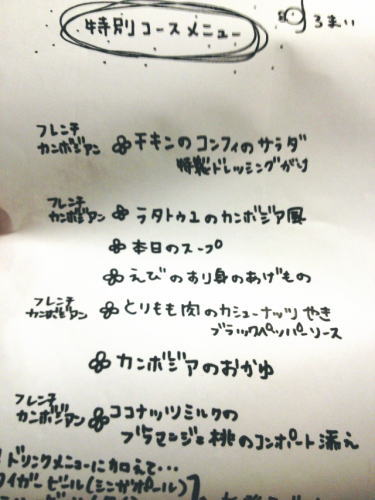 特別コースメニュー
うまい
フレンチ
カンボジアン
チキンのコンフィのサラダ
特製ドレッシングがけ
フレンチ
カンボジアン
ラタトゥユのカンボジア風
本日のスープ
えびのすり身のあげもの
フレンチ
カンボジアン
とりもも肉のカシューナッツやき
ブラックペッパーソース
カンボジアのおかゆ
フレンチ
カンボジアン
ココナッツミルクの
ブラマンジェ桃のコンポート添え
ドリンクメニューに加えて…
イガービール(シンガポール)